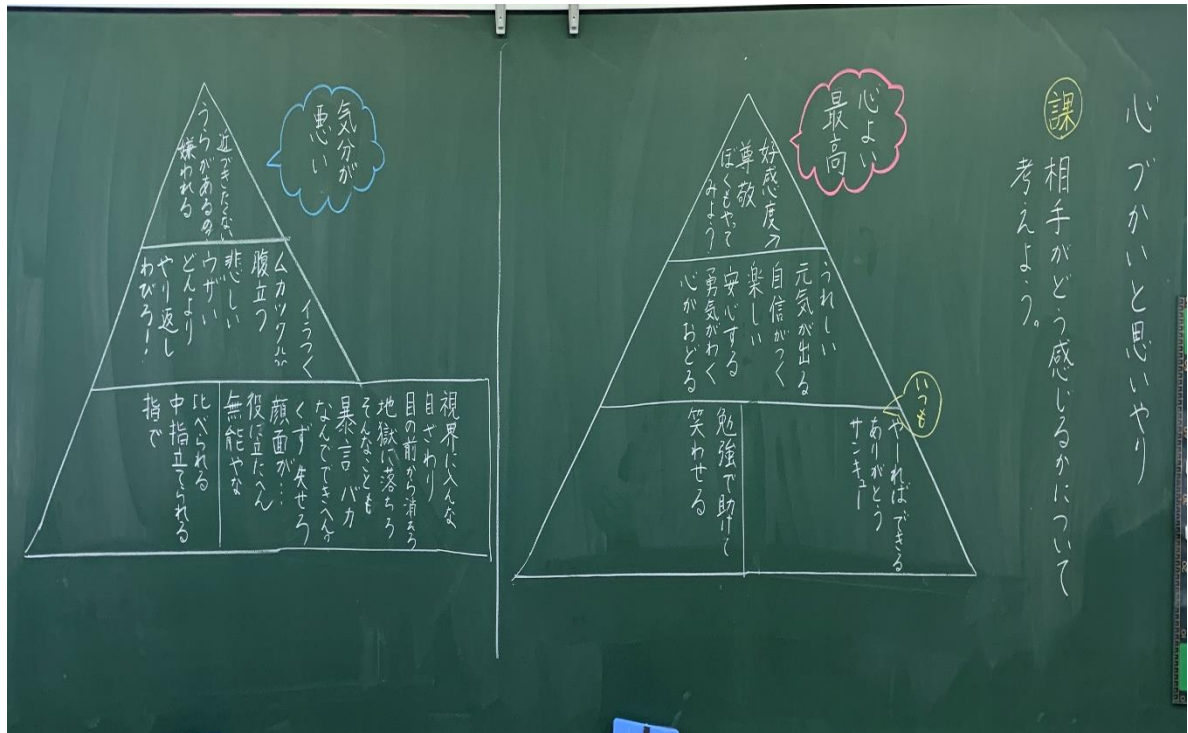 心づかいと思いやり
課
相手がどう感じるかについて
考えよう。
心よい
最高
好感度↗
尊敬
ぼくもやって
みよう
うれしい
元気が出る
自信がつく
楽しい
安心する
勇気がわく
心がおどる
いつも
やーればできる
ありがとう
サンキュー
勉強で助けて
笑わせる
気分が
悪い
近づきたくない
うらがあるの?
嫌われる
イラつく
ムカツク
腹立つ
悲しい
ウザい
どんより
やり返し
わびろ!
視界に入んな
目ざわり
目の前から消えろ
地獄に落ちろ
そんなことも
暴言 バカ
なんでできへん?
くず 失せろ
顔面が…
役に立たへん
無能やな
比べられる
中指立てられる
指で